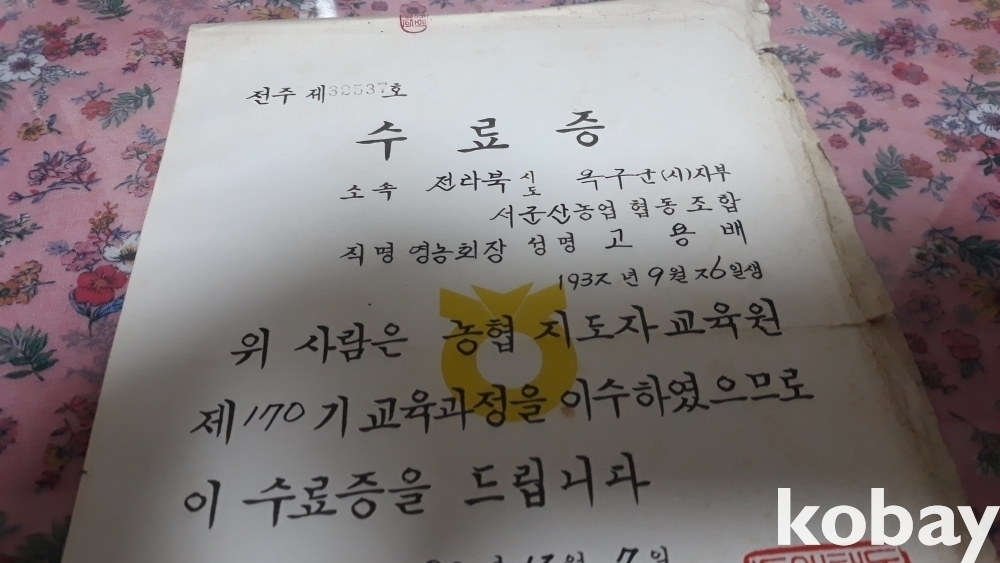 전주 제32537호
수 료 증
소속 전라북 시도 옥구군(시)지부
서군산농업협동조합
직명 영농회장 성명 고 용 배
1932년 9월 26일생
위 사람은 농협 지도자교육원
제170기 교육과정을 이수하였으므로
이 수료증을 드립니다
7일
kobay